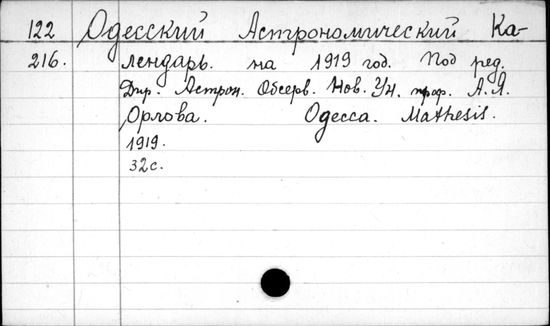 122 Одесский Астрономический Ка-
216. лендарь. на 1919 год. Под ред.
Дир. Астрон. Обсерв. Нов. Ун. проф. А.Я.
Орлова. Одесса. Mathesis.
1919.
32с.